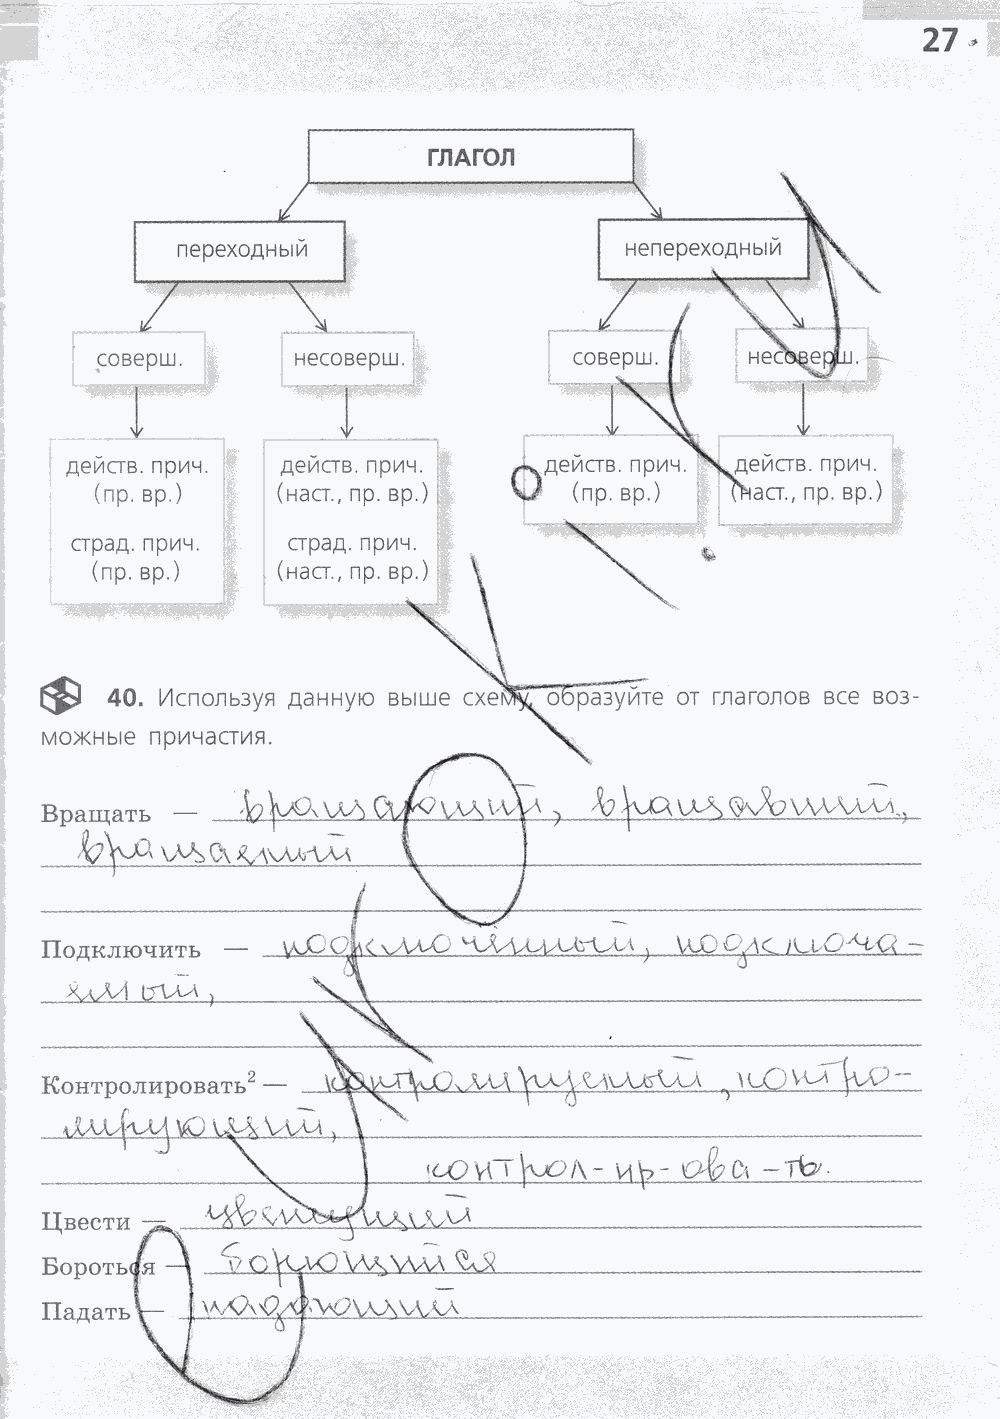 27
ГЛАГОЛ
переходный
непереходный
соверш.
несоверш.
соверш.
несоверш.
действ. прич.
(пр. вр.)
страд. прич.
(пр. вр.)
действ. прич.
(наст., пр. вр.)
страд. прич.
(наст., пр. вр.)
действ. прич.
(пр. вр.)
действ. прич.
(наст., пр. вр.)
40. Используя данную выше схему, образуйте от глаголов все воз-
можные причастия.
Вращать — вращающий, вращавший,
вращаемый
Подключить — подключённый, подключа-
емый,
Контролировать² — контролируемый, контро-
лирующий,
контрол-ир-ова-ть.
Цвести — цветущий
Бороться — борющийся
Падать — падающий